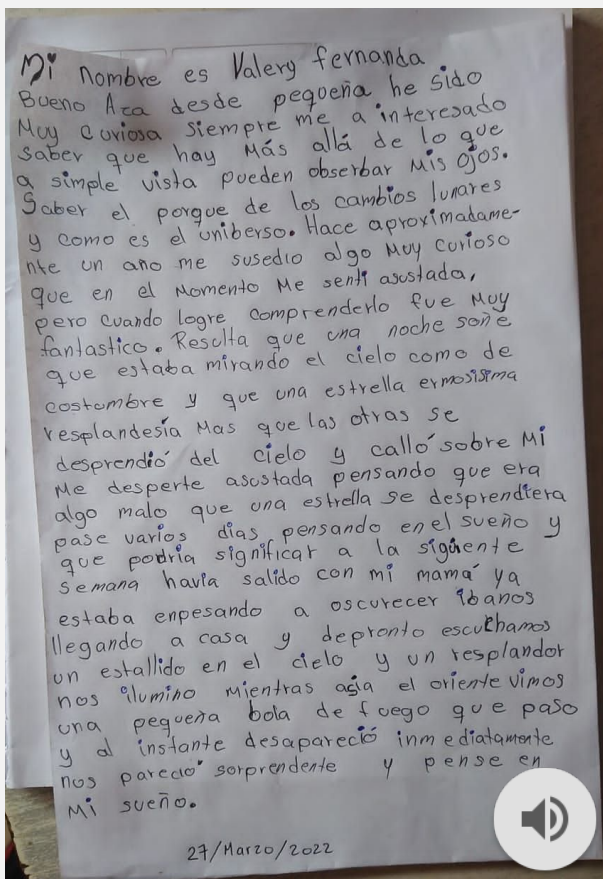 Mi nombre es Valery fernanda
Bueno Aza desde pequeña he sido
Muy curiosa siempre me a interesado
saber que hay Más allá de lo que
a simple vista pueden obserbar Mis ojos.
Saber el porque de los cambios lunares
y como es el uniberso. Hace aproximadame-
nte un año me susedio algo Muy curioso
que en el Momento Me senti asustada,
pero cuando logre comprenderlo fue Muy
fantastico. Resulta que una noche soñe
que estaba mirando el cielo como de
costumbre y que una estrella ermosisima
resplandesía Mas que las otras se
desprendió del cielo y calló sobre Mi
Me desperte asustada pensando que era
algo malo que una estrella se desprendiera
pase varios dias pensando en el sueño y
que podria significar a la siguiente
semana havia salido con mi mamá ya
estaba enpesando a oscurecer ibanos
llegando a casa y depronto escuchamos
un estallido en el cielo y un resplandor
nos ilumino mientras asia el oriente vimos
una pequeña bola de fuego que paso
y al instante desapareció inmediatamente
nos pareció sorprendente y pense en
Mi sueño.
27/Marzo/2022